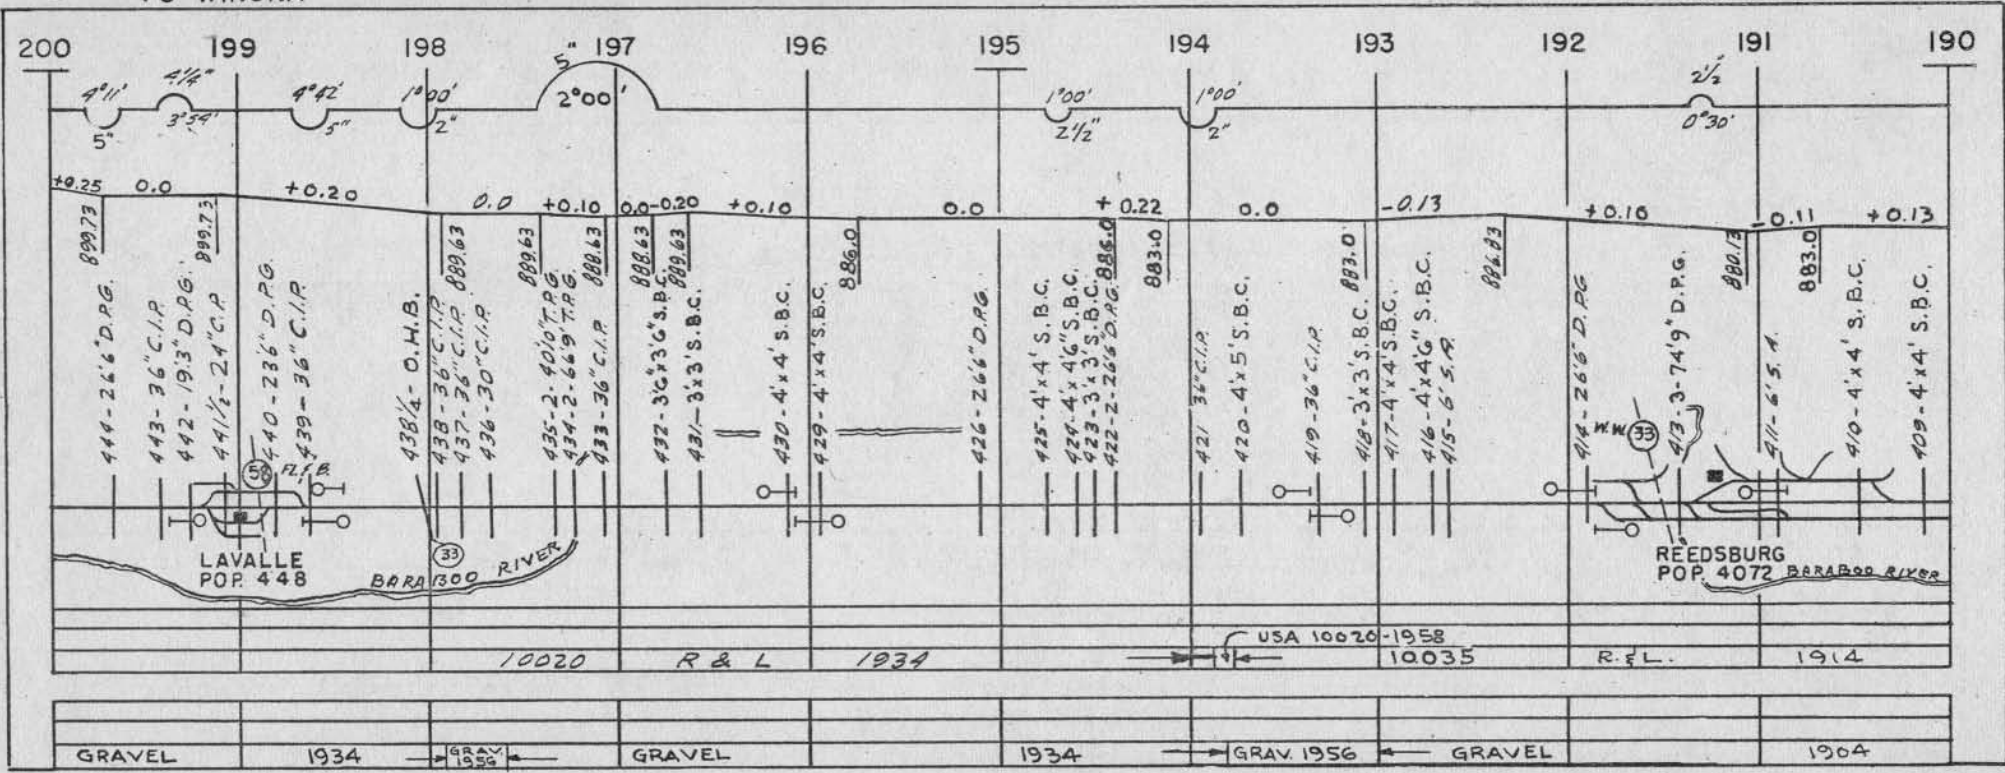 200 199 198 197 196 195 194 193 192 191 190
4°11' 5"
4 1/4" 3°54'
4°42' 5"
1°00' 2"
5" 2°00'
1°00' 2 1/2"
1°00' 2"
2 1/2 0°30'
+0.25 0.0 +0.20 0.0 +0.10 0.0 -0.20 +0.10 0.0 +0.22 0.0 -0.13 +0.16 -0.11 +0.13
899.73 899.73 889.63 889.63 888.63 888.63 889.63 886.0 886.0 883.0 883.0 886.83 880.13 883.0
444-26'6" D.P.G.
443-36" C.I.P.
442-19'3" D.P.G.
441 1/2-24" C.P.
440-23'6" D.P.G.
439-36" C.I.P.
438 1/2-O.H.B.
438-36" C.I.P.
437-36" C.I.P.
436-30" C.I.P.
435-2-40'0" T.P.G.
434-2-66'9" T.P.G.
433-36" C.I.P.
432-3'6"x3'6" S.B.C.
431-3'x3' S.B.C.
430-4'x4' S.B.C.
429-4'x4' S.B.C.
426-26'6" D.P.G.
425-4'x4' S.B.C.
424-4'x4'6" S.B.C.
423-3'x3' S.B.C.
422-2-26'6" D.P.G.
421 36" C.I.P.
420-4'x5' S.B.C.
419-36" C.I.P.
418-3'x3' S.B.C.
417-4'x4' S.B.C.
416-4'x4'6" S.B.C.
415-6' S.A.
414-26'6" D.P.G
413-3-74'9" D.P.G.
411-6' S.A.
410-4'x4' S.B.C.
409-4'x4' S.B.C.
58 FL.F.B.
W.W. 33
33
LAVALLE
POP. 448
BARABOO RIVER
REEDSBURG
POP. 4072 BARABOO RIVER
USA 10020-1958
10020 R & L 1934 10035 R. & L. 1914
GRAVEL 1934 GRAV. 1956 GRAVEL 1934 GRAV. 1956 GRAVEL 1904